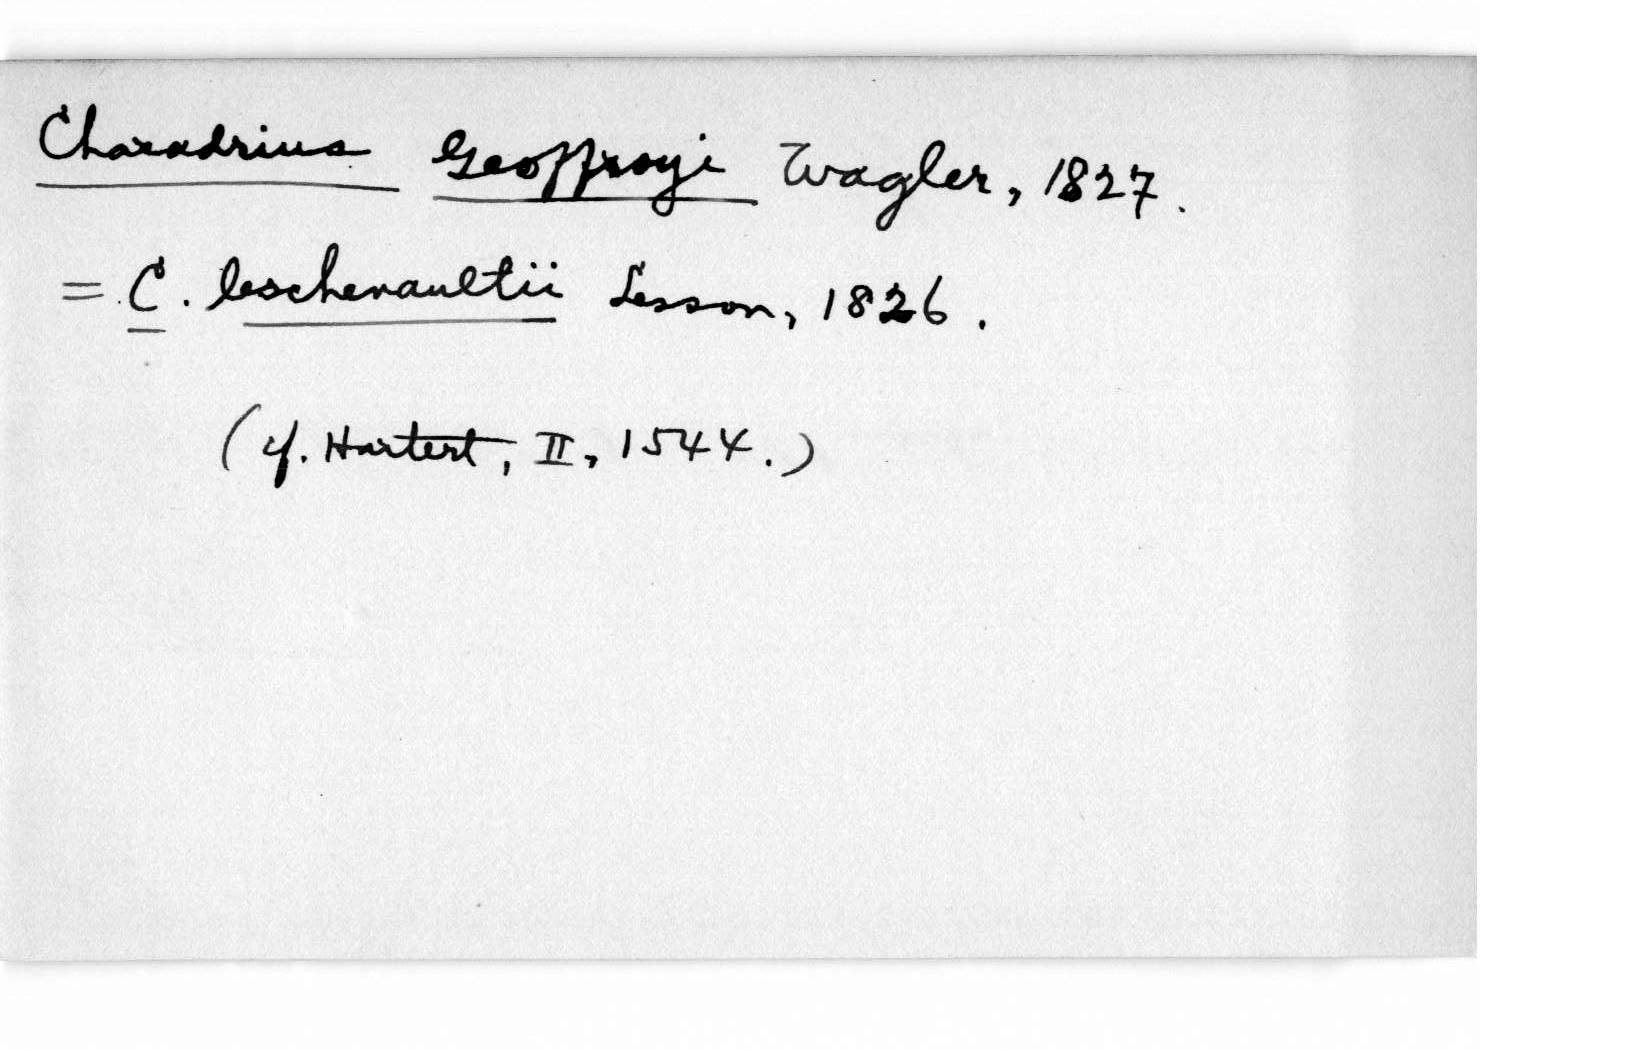 Charadrius Geoffroyi Wagler, 1827.
= C. leschenaultii Lesson, 1826.
(cf. Hartert, II, 1544.)